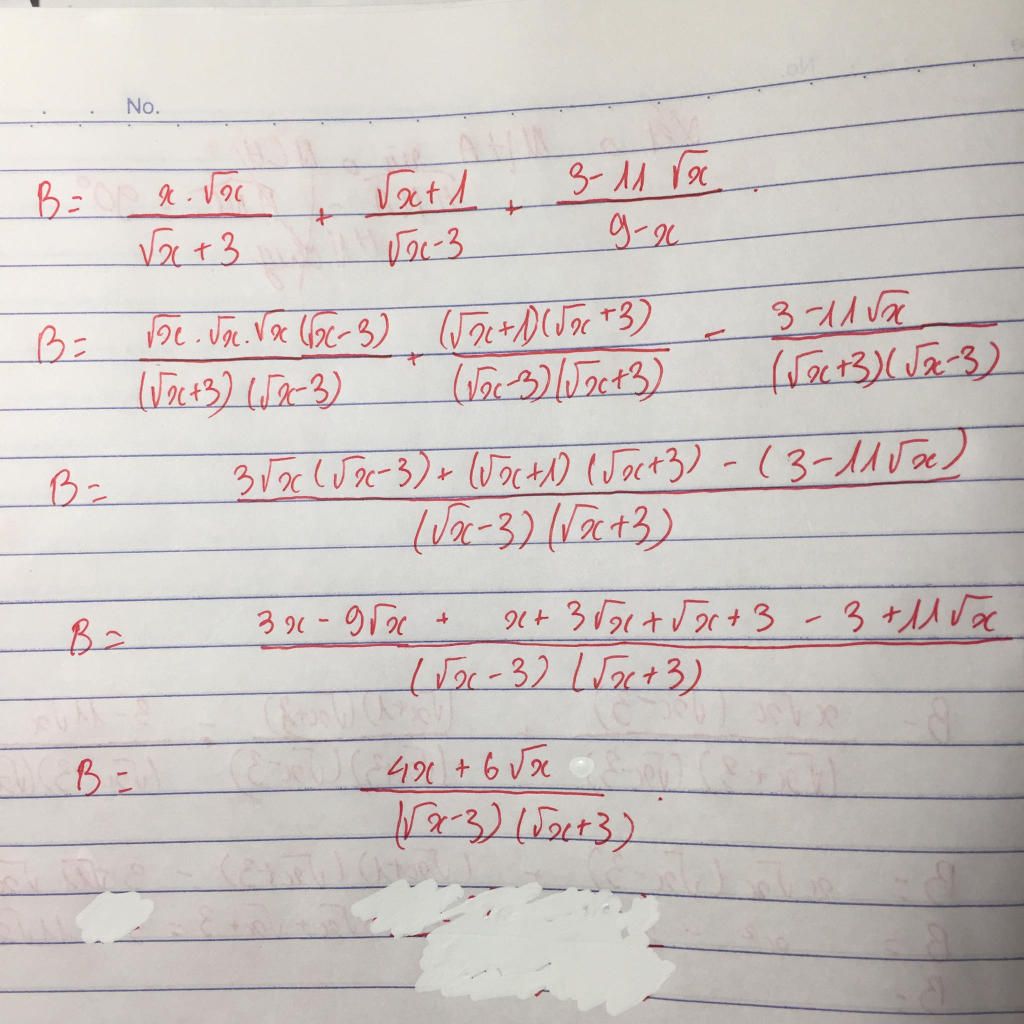 No.
B = x.√x / (√x + 3) + (√x + 1) / (√x - 3) + (3 - 11√x) / (9 - x) .
B = √x.√x.√x (√x - 3) / (√x + 3)(√x - 3) + (√x + 1)(√x + 3) / (√x - 3)(√x + 3) - (3 - 11√x) / (√x + 3)(√x - 3)
B = 3√x (√x - 3) + (√x + 1)(√x + 3) - (3 - 11√x) / (√x - 3)(√x + 3)
B = 3x - 9√x + x + 3√x + √x + 3 - 3 + 11√x / (√x - 3)(√x + 3)
B = 4x + 6√x / (√x - 3)(√x + 3) .